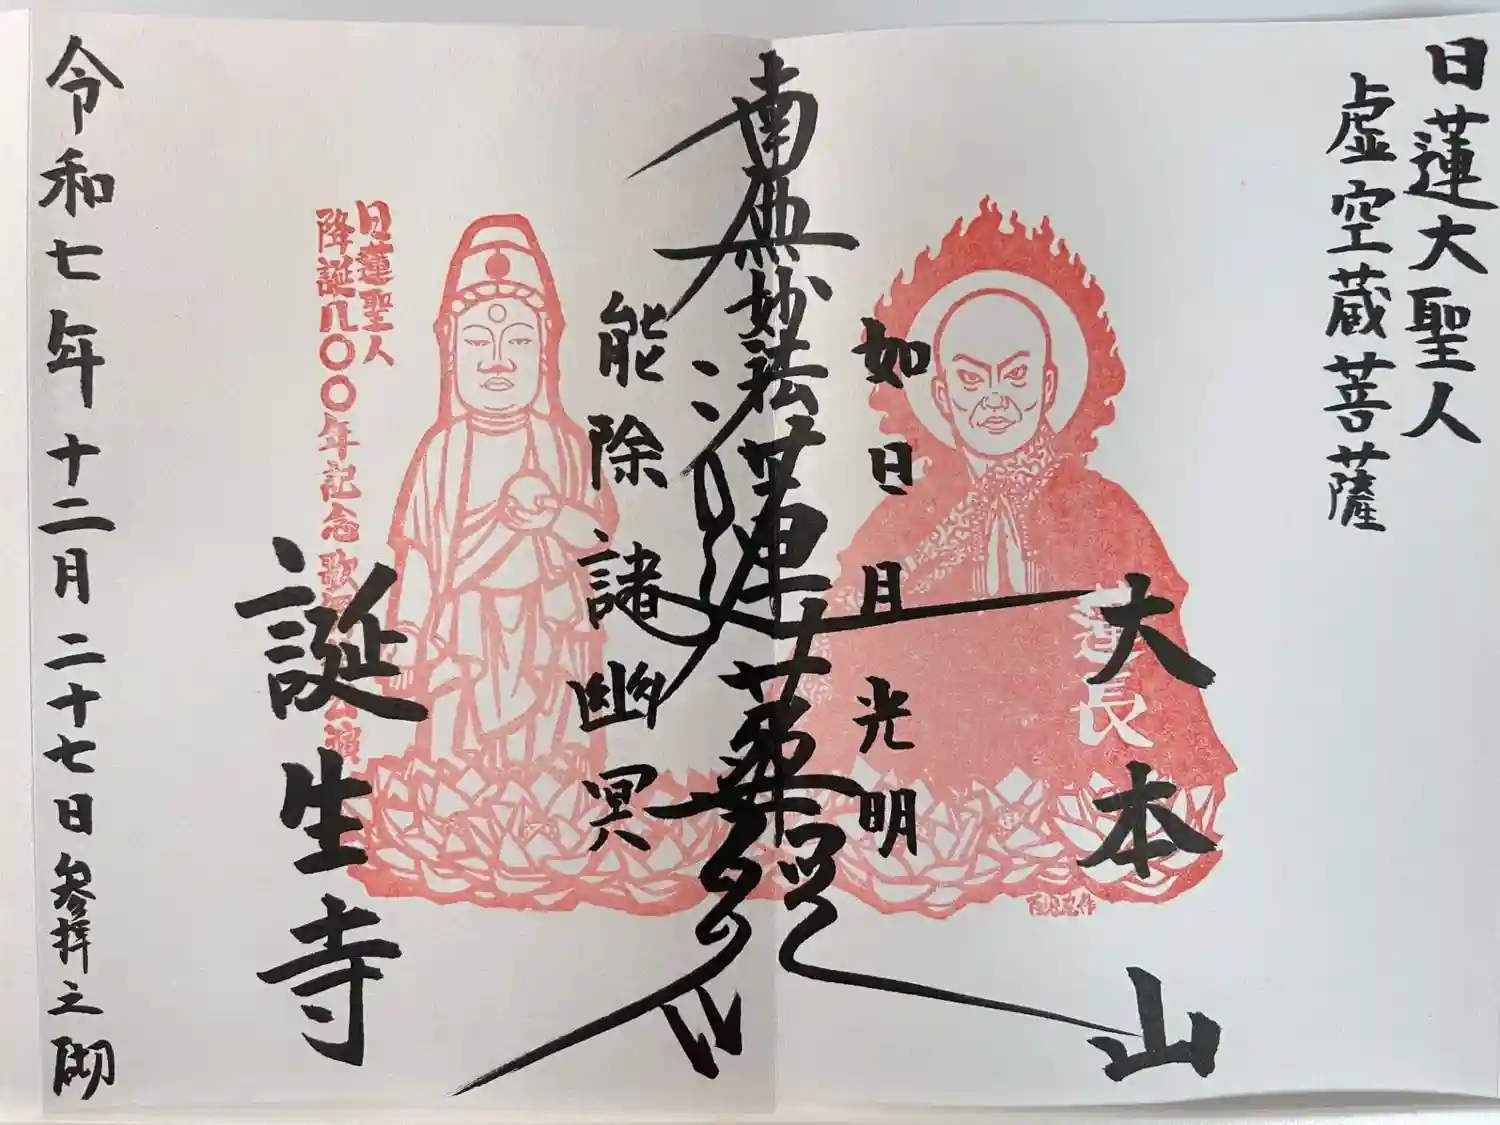 日蓮大聖人
虚空蔵菩薩
大本山
蓮長
如日月光明
南無妙法蓮華経
能除諸幽冥
日蓮聖人
降誕八〇〇年記念歌
公演
誕生寺
令和七年十二月二十七日参拝之砌